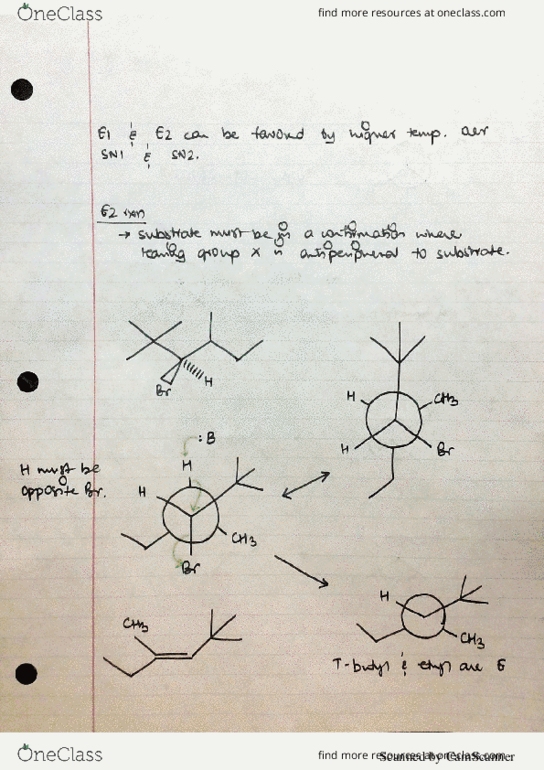 OneClass
find more resources at oneclass.com
E1 & E2 can be favoured by higher temp. over
SN1 & SN2.
E2 rxn
→ substrate must be in a conformation where
leaving group X is antiperiplanar to substrate.
Br
H
H
CH3
H
Br
:B
H must be
opposite Br.
H
H
CH3
Br
H
CH3
CH3
T-butyl & ethyl are E
OneClass
find more resources at oneclass.com
Scanned by CamScanner